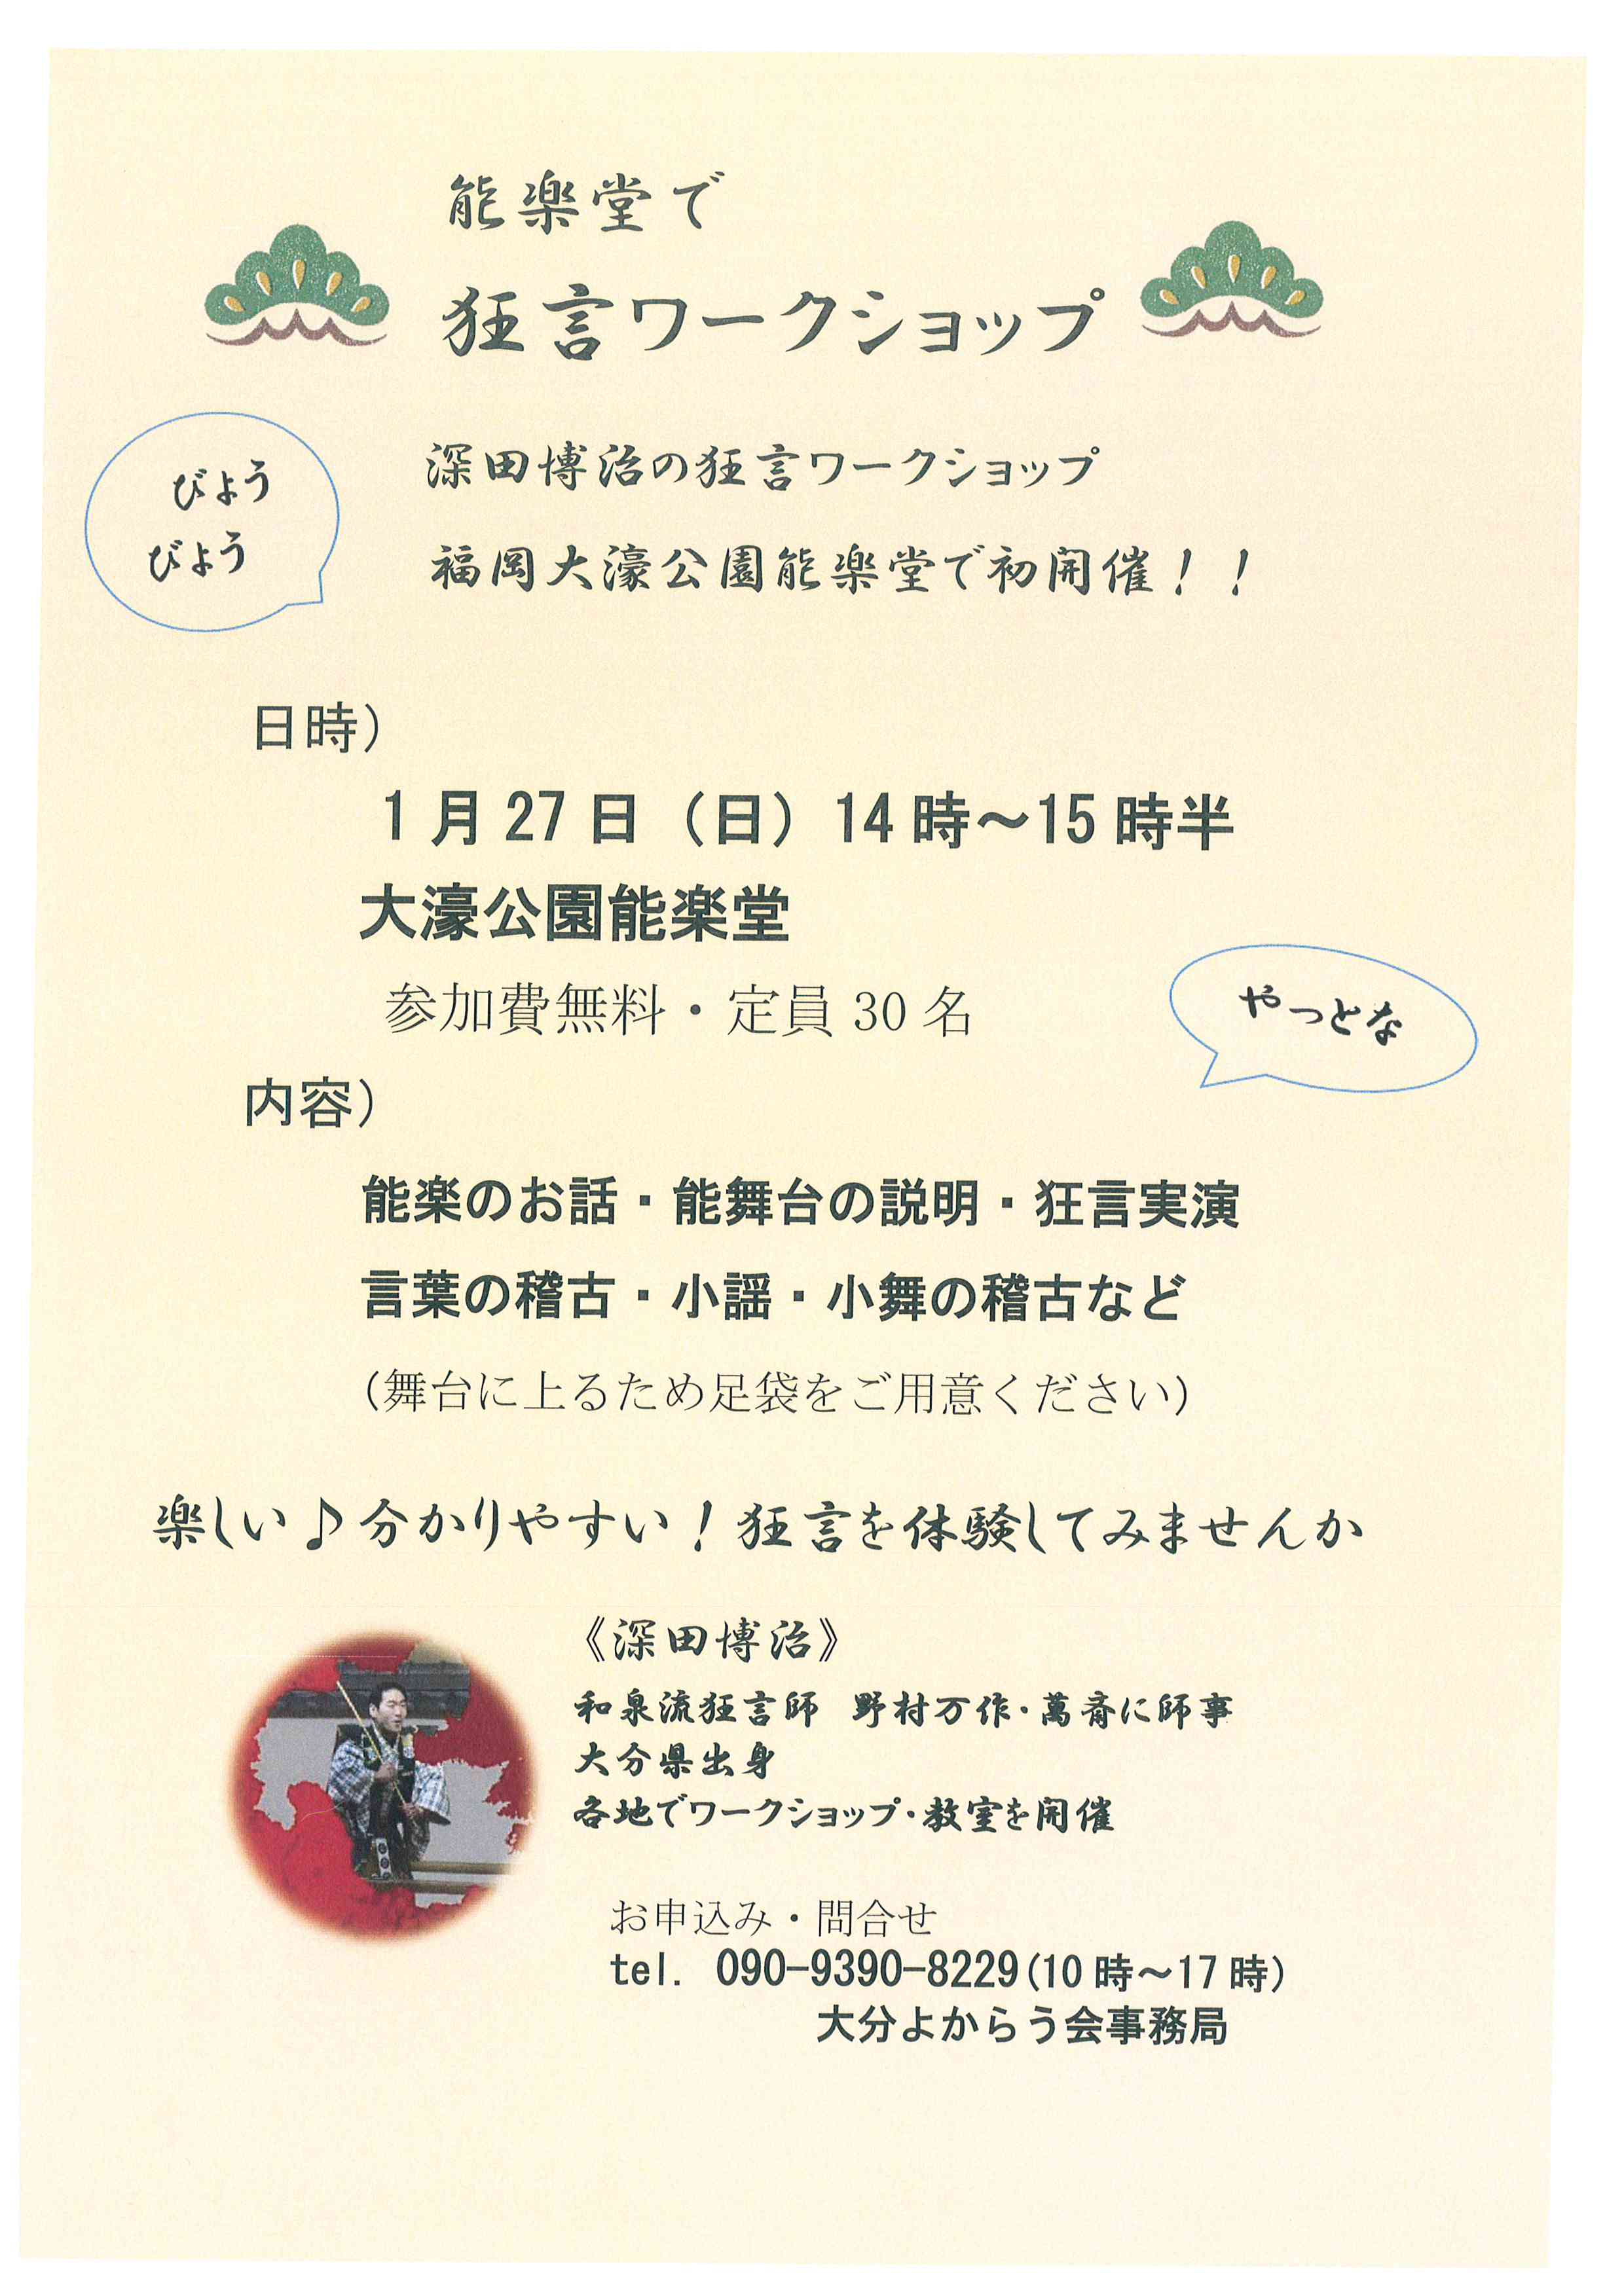 能楽堂で
狂言ワークショップ
びょう
びょう
深田博治の狂言ワークショップ
福岡大濠公園能楽堂で初開催！！
日時）
1月27日（日）14時～15時半
大濠公園能楽堂
参加費無料・定員30名
やっとな
内容）
能楽のお話・能舞台の説明・狂言実演
言葉の稽古・小謡・小舞の稽古など
（舞台に上るため足袋をご用意ください）
楽しい♪分かりやすい！狂言を体験してみませんか
《深田博治》
和泉流狂言師　野村万作・萬斉に師事
大分県出身
各地でワークショップ・教室を開催
お申込み・問合せ
tel. 090-9390-8229(10時～17時)
大分よからう会事務局